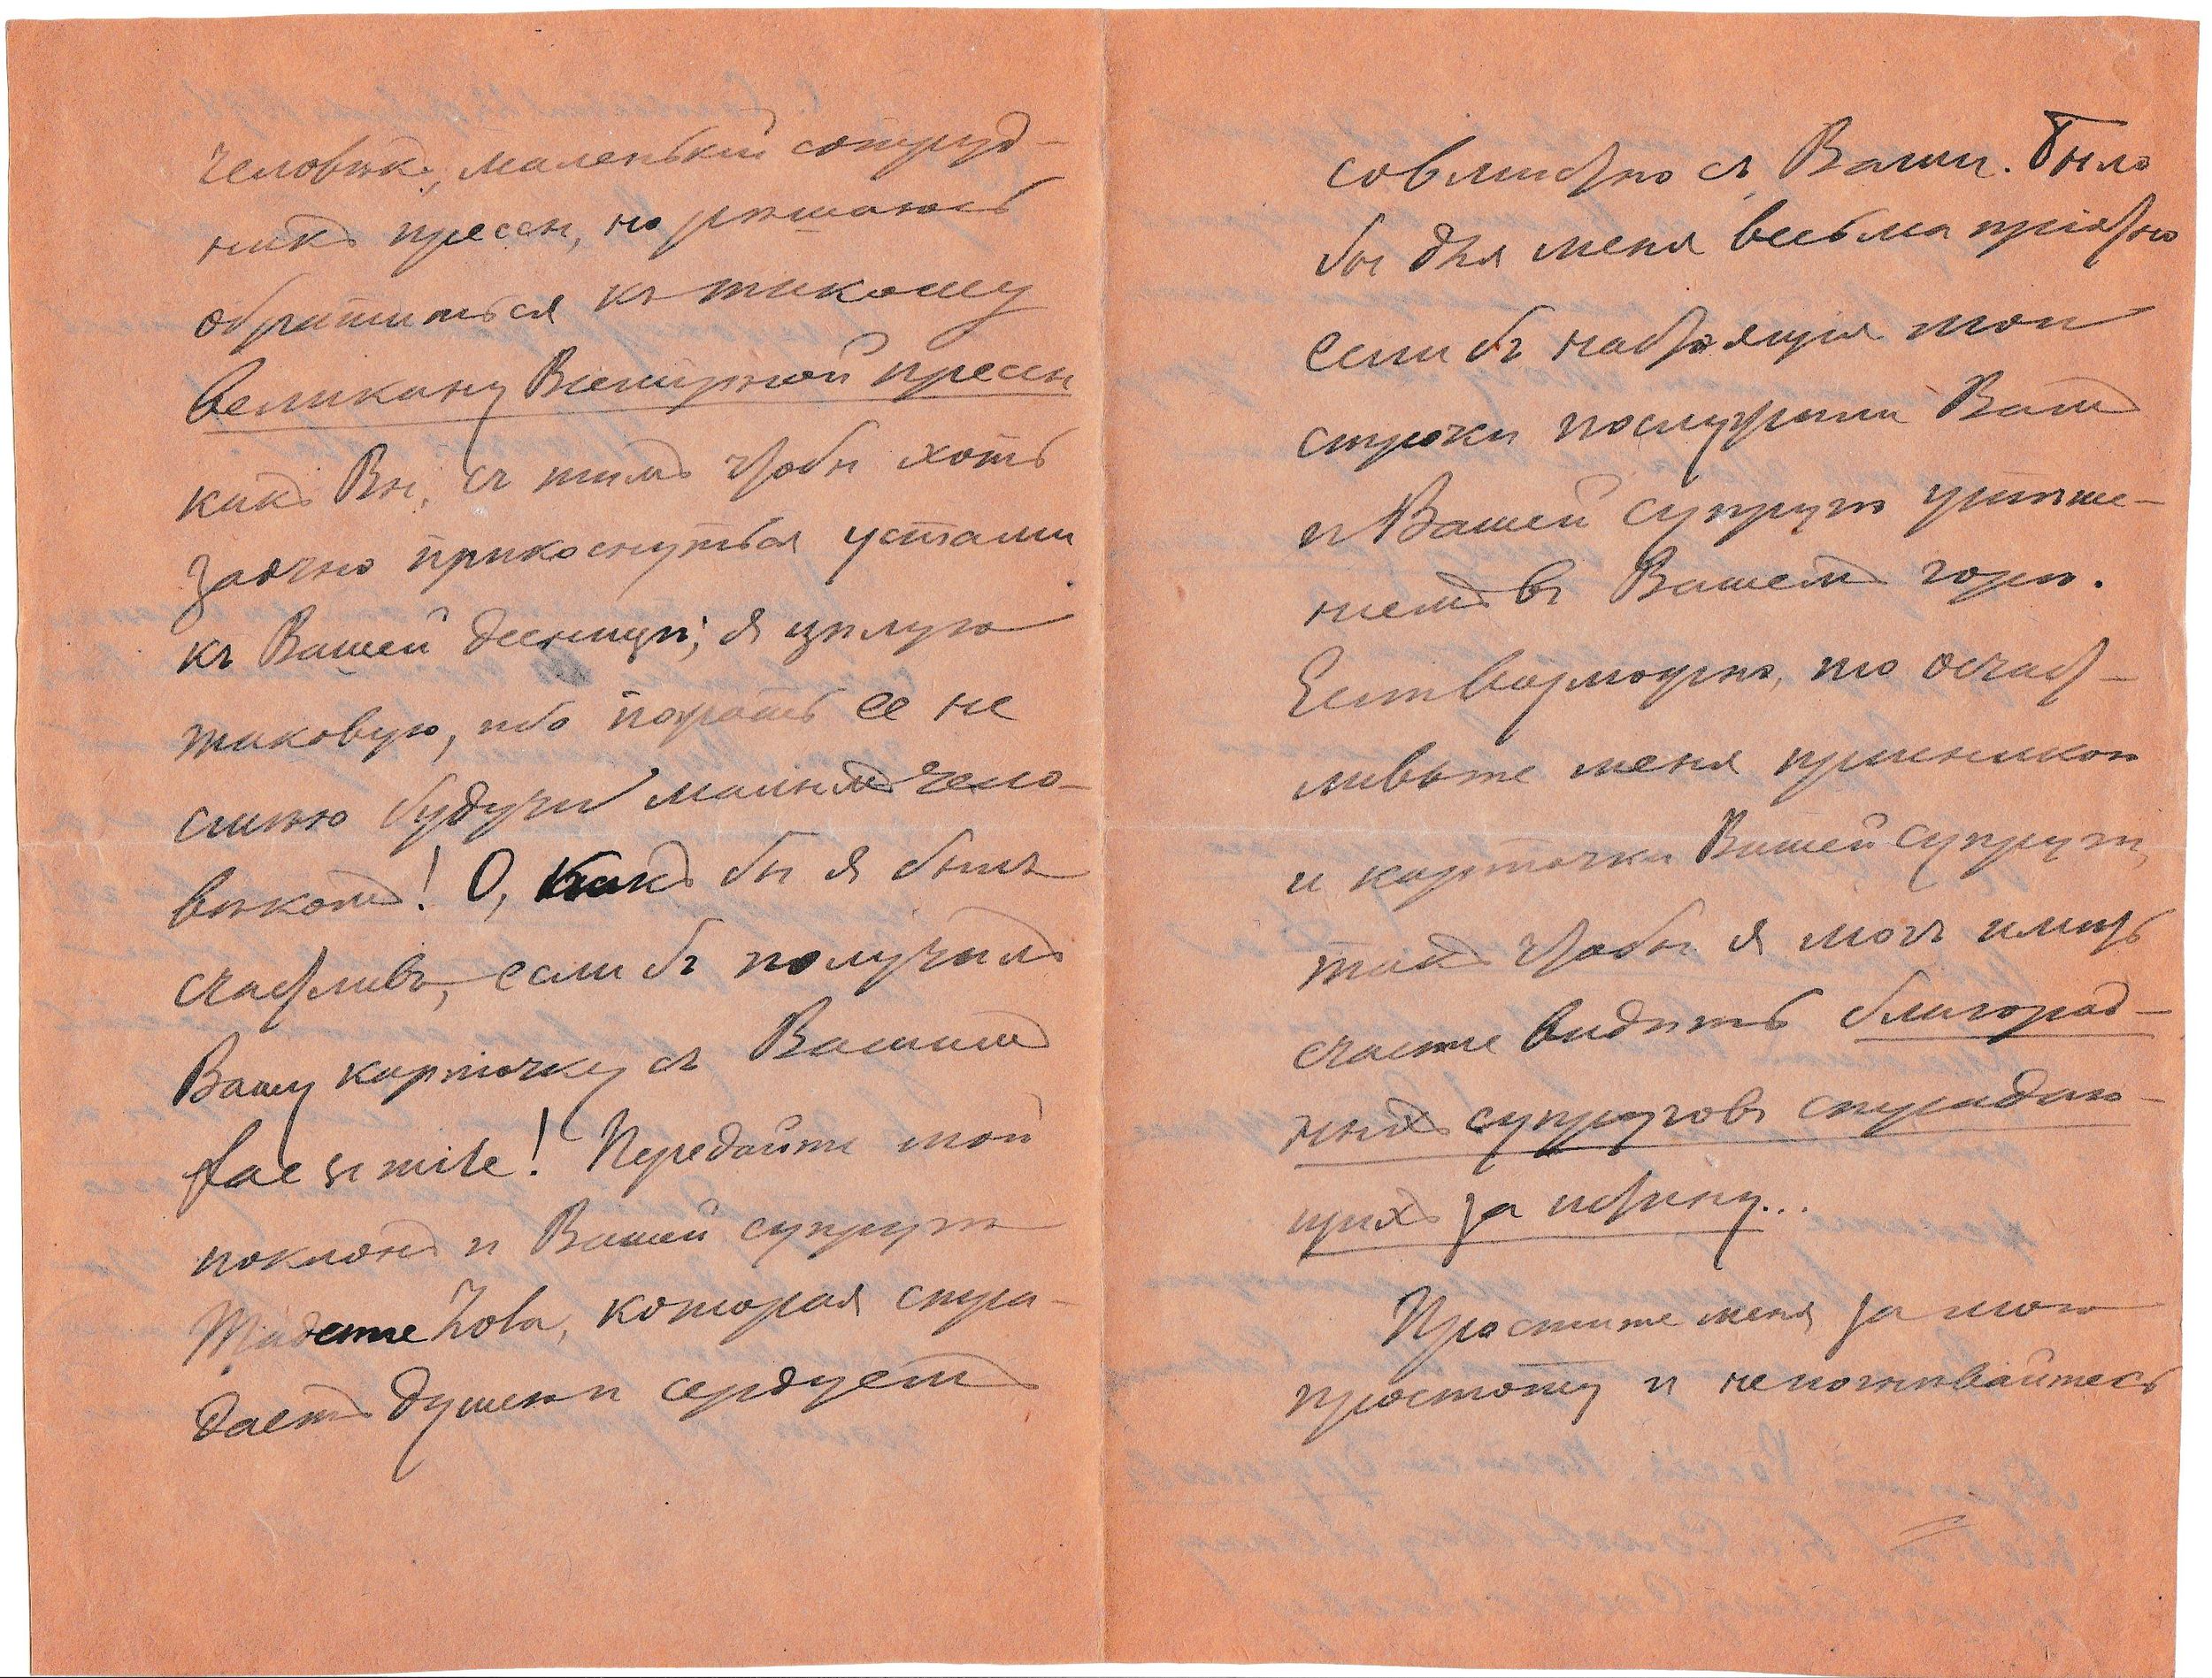 человѣкъ, маленькій сотруд-
никъ прессы, но рѣшаюсь
обратиться къ такому
великану Всемірной прессы
какъ Вы, съ тѣмъ чтобы хоть
заочно прикоснуться устами
къ Вашей десницѣ; я цѣлую
таковую, ибо пожать ее не
смѣю будучи малымъ чело-
вѣкомъ! О, какъ бы я былъ
счастливъ, если бъ получилъ
Вашу карточку съ Вашимъ
fac simile! Передайте мой
поклонъ и Вашей супругѣ
Madame Zola, которая стра-
даетъ душею и сердцемъ
совмѣстно съ Вами. Было
бы для меня весьма пріятно
если бъ настоящія мои
строки послужили Вамъ
и Вашей супругѣ утѣше-
ніемъ въ Вашемъ горѣ.
Если возможно, то осчаст-
ливьте меня присылкою
и карточки Вашей супруги,
такъ чтобы я могъ имѣть
счастье видѣть благород-
ныхъ супруговъ страдаю-
щихъ за истину...
Простите меня за мою
простоту и непогнѣвайтесь